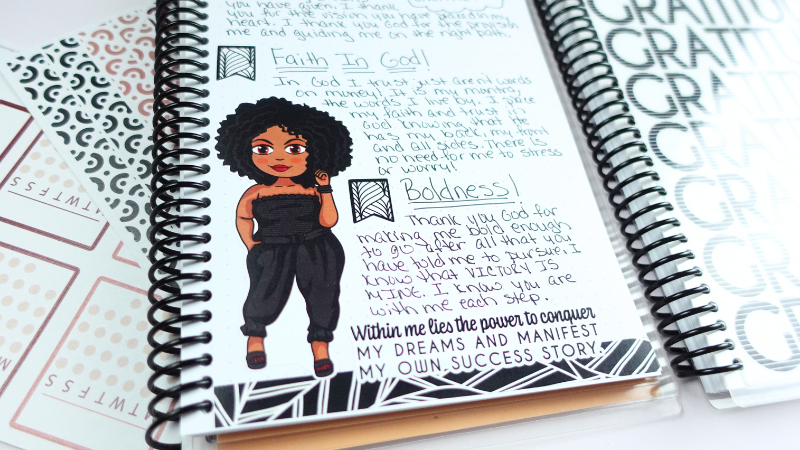 you have given. I thank
you for the vision you have placed in my
heart. I thank you God for the strength
me and guiding me on the right path.
Faith In God!
In God I trust just aren't words
on money! It is my mantra,
the words I live by. I place
my faith and trust in
God knowing that He
is my back, my front
and all sides. There is
no need for me to stress
or worry!
Boldness!
Thank you God for
making me bold enough
to go after all that you
have told me to pursue. I
know that VICTORY IS
MINE. I know you are
with me each step.
Within me lies the power to conquer
MY DREAMS AND MANIFEST
MY OWN SUCCESS STORY.
GRATITU
GRATITU
GRATIT
GRATI
GRAT
GRA
M T W T F S S
M T W T F S S